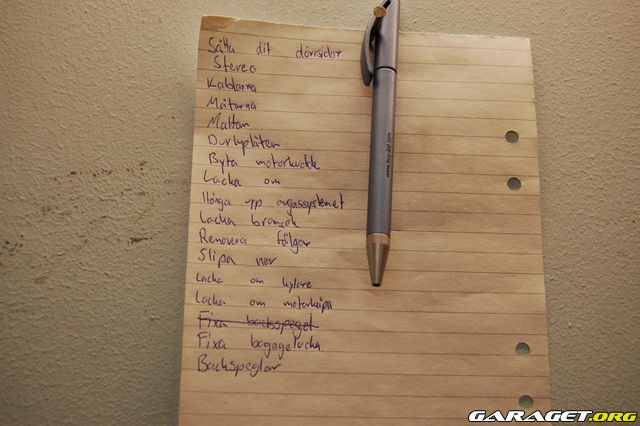 Sätta dit dörrsidor
Stereo
Kablarna
Mätarna
Mattan
Durkplåten
Byta motorhuv
Lacka om
Hänga upp avgassystemet
Lacka bromsok
Renovera fälgar
Slipa ner
Lacka om kylare
Lacka om motorkåpa
Fixa backspegel
Fixa bagagelucka
Backspeglar
GARAGET.ORG